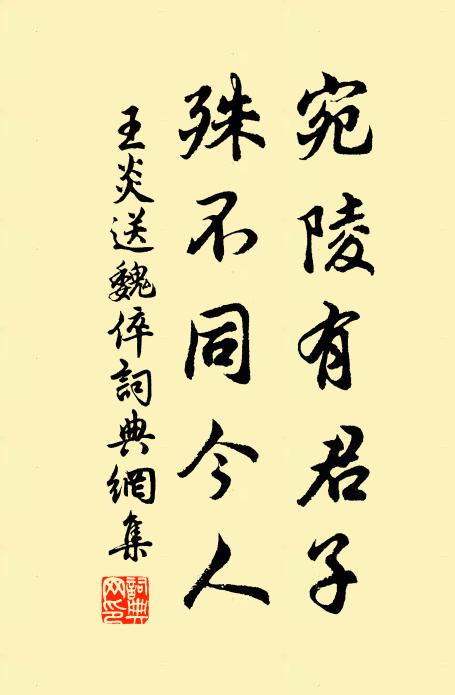 宛陵有君子
殊不同今人
王炎送魏倅詞典網集
詞典網印